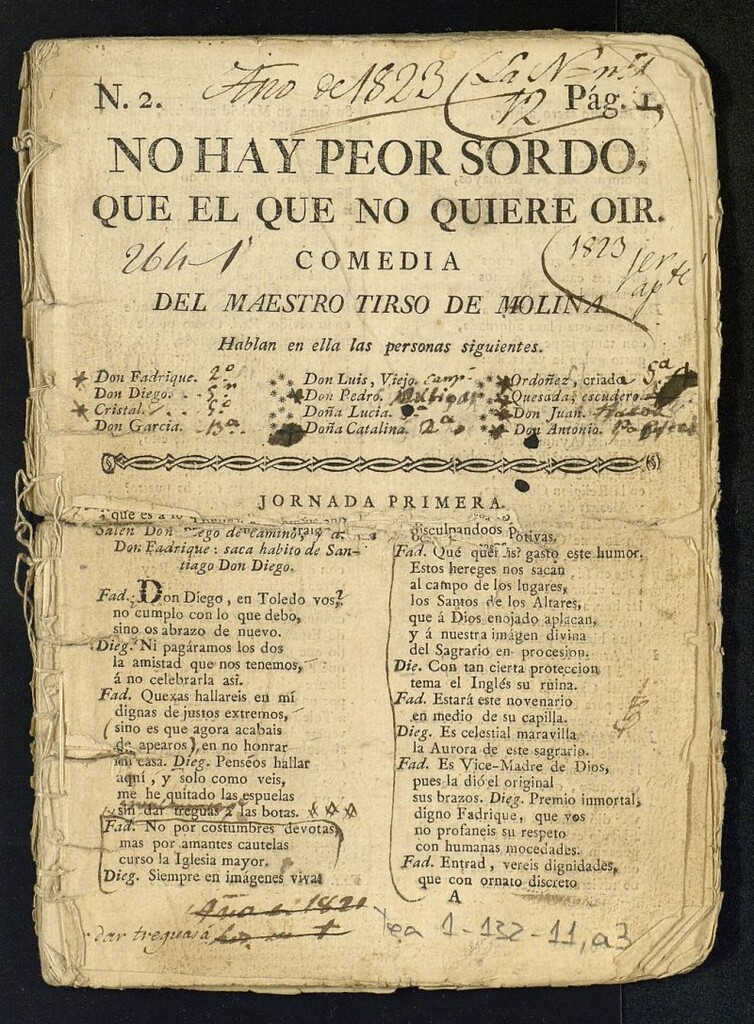 Año de 1823
N. 2.
12 Pág. 1.
NO HAY PEOR SORDO,
QUE EL QUE NO QUIERE OIR.
1823
COMEDIA
DEL MAESTRO TIRSO DE MOLINA
Hablan en ella las personas siguientes.
Don Fadrique. 2º Don Luis, Viejo. Ordoñez, criado 5ª
Don Diego. Don Pedro. Quesada, escudero.
Cristal. Doña Lucia. Don Juan.
Don Garcia. 13ª Doña Catalina. 2ª Don Antonio.
JORNADA PRIMERA.
que es a lo
Salen Don Diego de camino, y
Don Fadrique: saca habito de San-
tiago Don Diego.
Fad. Don Diego, en Toledo vos,?
no cumplo con lo que debo,
sino os abrazo de nuevo.
Dieg. Ni pagáramos los dos
la amistad que nos tenemos,
á no celebrarla asi.
Fad. Quexas hallareis en mí
dignas de justos extremos,
(sino es que agora acabais
de apearos), en no honrar
mi casa. Dieg. Penséos hallar
aquí, y solo como veis,
me he quitado las espuelas
sin dar treguas á las botas.
Fad. No por costumbres devotas,
mas por amantes cautelas
curso la Iglesia mayor.
Dieg. Siempre en imágenes vivas
disculpandoos Potivas.
Fad. Qué gasto este humor.
Estos hereges nos sacan
al campo de los lugares,
los Santos de los Altares,
que á Dios enojado aplacan,
y á nuestra imágen divina
del Sagrario en procesion.
Die. Con tan cierta proteccion
tema el Inglés su ruina.
Fad. Estará este novenario
en medio de su capilla.
Dieg. Es celestial maravilla
la Aurora de este sagrario.
Fad. Es Vice-Madre de Dios,
pues la dió el original
sus brazos. Dieg. Premio inmortal,
digno Fadrique, que vos
no profaneis su respeto
con humanas mocedades.
Fad. Entrad, vereis dignidades,
que con ornato discreto
A
Año de 1820
dar treguas á
Tea 1-132-11, a3